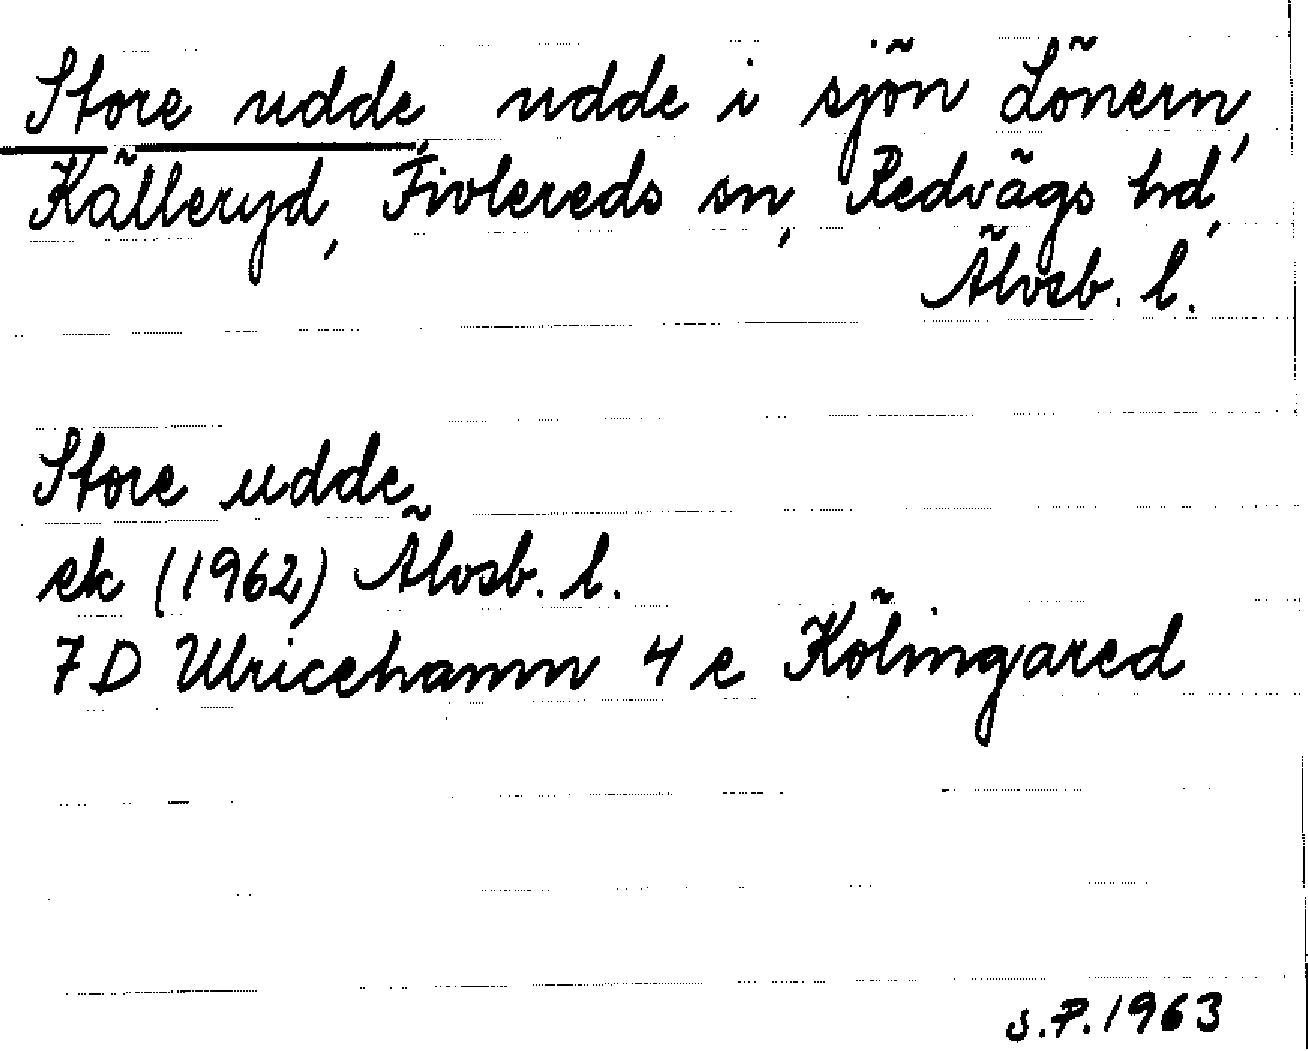 Store udde, udde i sjön Lönern,
Källeryd, Fivlereds sn, Redvägs hd,
Älvsb. l.
Store udde
ek (1962) Älvsb. l.
7 D Ulricehamn 4 e Kölingared
S.P. 1963